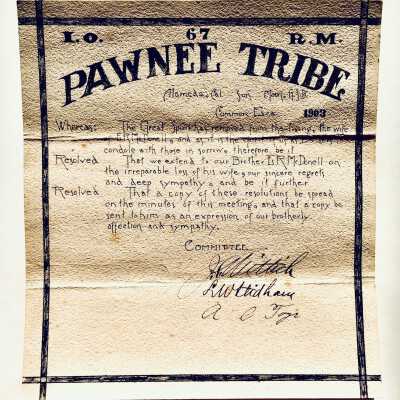 I.O. 67 R.M.
PAWNEE TRIBE
Alameda, Cal. Sun Moon, G.S.D.
Common Era 1903
Whereas: The Great Spirit has removed from the the wife
of E.R. McDonell, and as it is the custom of
condole with those in sorrow, therefore, be it
Resolved That we extend to our Brother E.R. McDonell on
the irreparable loss of his wife, our sincere regrets
and deep sympathy, and be it further
Resolved That a copy of these resolutions be spread
on the minutes of this meeting, and that a copy be
sent to him as an expression of our brotherly
affection and sympathy.
COMMITTEE